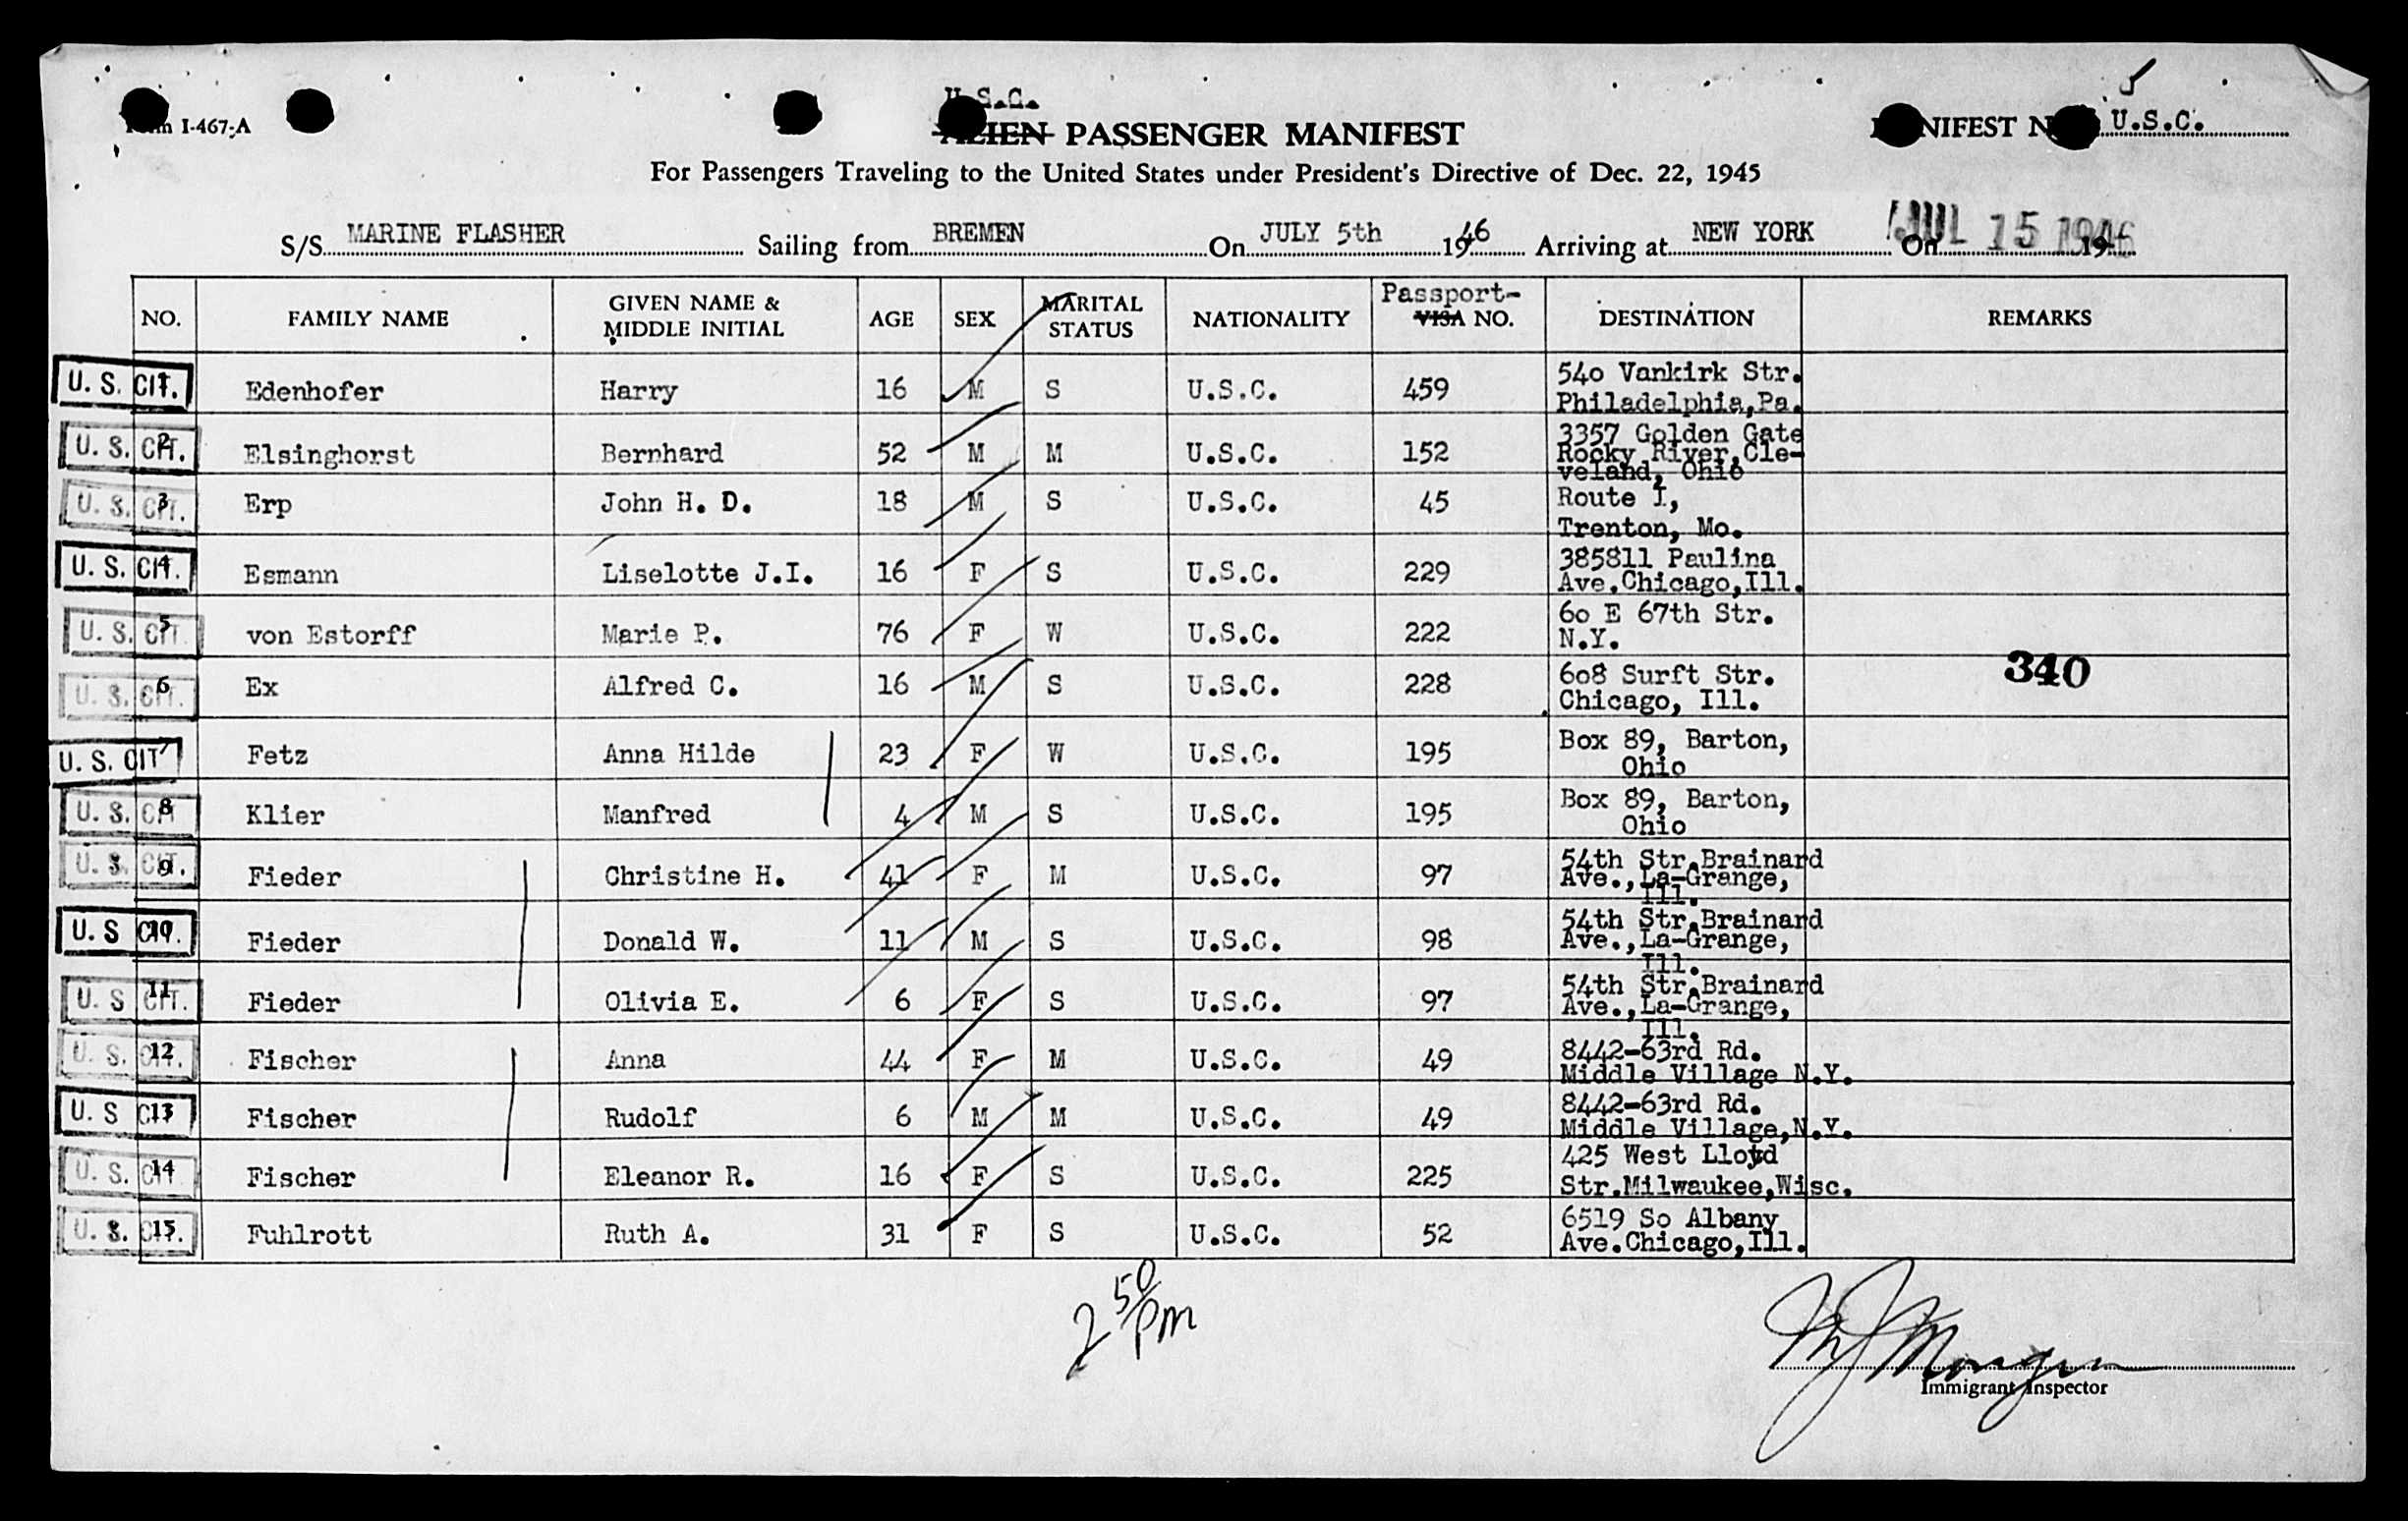 U.S.C.
Form I-467-A
ALIEN PASSENGER MANIFEST
MANIFEST NO. U.S.C.
For Passengers Traveling to the United States under President's Directive of Dec. 22, 1945
S/S MARINE FLASHER Sailing from BREMEN On JULY 5th 1946 Arriving at NEW YORK On JUL 15 1946 19
NO. FAMILY NAME GIVEN NAME & MIDDLE INITIAL AGE SEX MARITAL STATUS NATIONALITY Passport- VISA NO. DESTINATION REMARKS
U. S. CIT. 1 Edenhofer Harry 16 M S U.S.C. 459 540 Vankirk Str. Philadelphia,Pa.
U. S. CIT. 2 Elsinghorst Bernhard 52 M M U.S.C. 152 3357 Golden Gate Rocky River,Cle- veland, Ohio
U. S. CIT. 3 Erp John H. D. 18 M S U.S.C. 45 Route I, Trenton, Mo.
U. S. CIT. 4 Esmann Liselotte J.I. 16 F S U.S.C. 229 385811 Paulina Ave.Chicago,Ill.
U. S. CIT. 5 von Estorff Marie P. 76 F W U.S.C. 222 60 E 67th Str. N.Y.
U. S. CIT. 6 Ex Alfred C. 16 M S U.S.C. 228 608 Surft Str. Chicago, Ill. 340
U. S. CIT 7 Fetz Anna Hilde 23 F W U.S.C. 195 Box 89, Barton, Ohio
U. S. CIT 8 Klier Manfred 4 M S U.S.C. 195 Box 89, Barton, Ohio
U. S. CIT. 9 Fieder Christine H. 41 F M U.S.C. 97 54th Str.Brainard Ave.,La-Grange, Ill.
U. S CIT. 10 Fieder Donald W. 11 M S U.S.C. 98 54th Str.Brainard Ave.,La-Grange, Ill.
U. S CIT. 11 Fieder Olivia E. 6 F S U.S.C. 97 54th Str.Brainard Ave.,La-Grange, Ill.
U. S. CIT. 12 Fischer Anna 44 F M U.S.C. 49 8442-63rd Rd. Middle Village N.Y.
U. S CIT 13 Fischer Rudolf 6 M M U.S.C. 49 8442-63rd Rd. Middle Village,N.Y.
U. S. CIT 14 Fischer Eleanor R. 16 F S U.S.C. 225 425 West Lloyd Str.Milwaukee,Wisc.
U. S. CIT. 15 Fuhlrott Ruth A. 31 F S U.S.C. 52 6519 So Albany Ave.Chicago,Ill.
2 50 pm
Immigrant Inspector